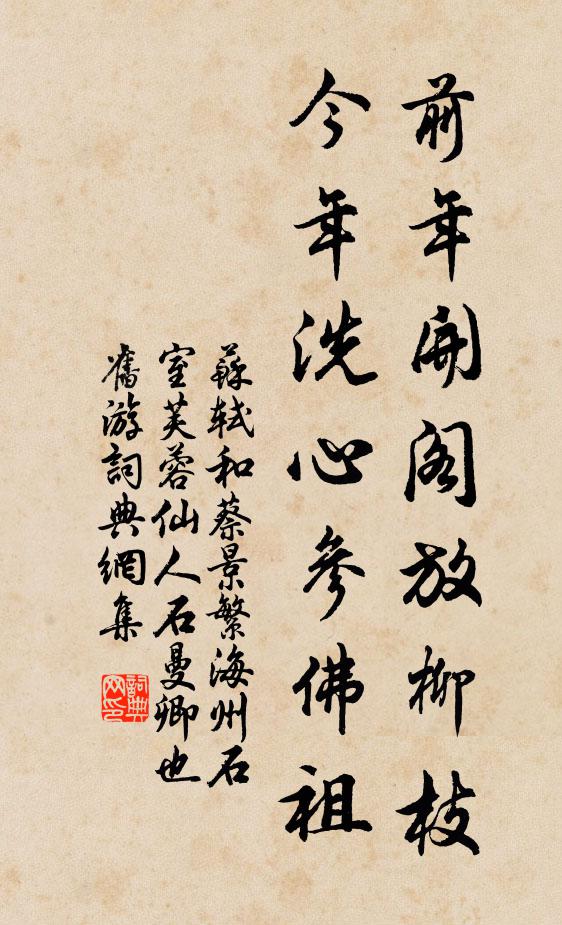 前年開閣放柳枝
今年洗心參佛祖
蘇軾和蔡景繁海州石
室芙蓉仙人石曼卿也
舊游詞典網集
詞典
网印